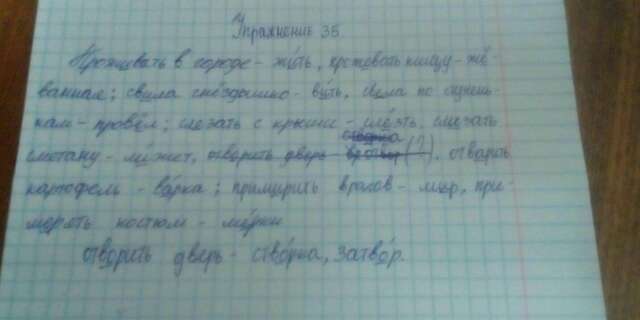 Упражнение 35
Проживать в городе - жить, прожевать пищу - жё-
ванная; свила гнёздышко - вить, свела по ступень-
кам - провёл; слезать с крыши - слезть, слизать
сметану - лижет, отворить дверь - створка (!), отварить
картофель - варка; примирить врагов - мир, при-
мерять костюм - мерки
отворить дверь - створка, затвор.